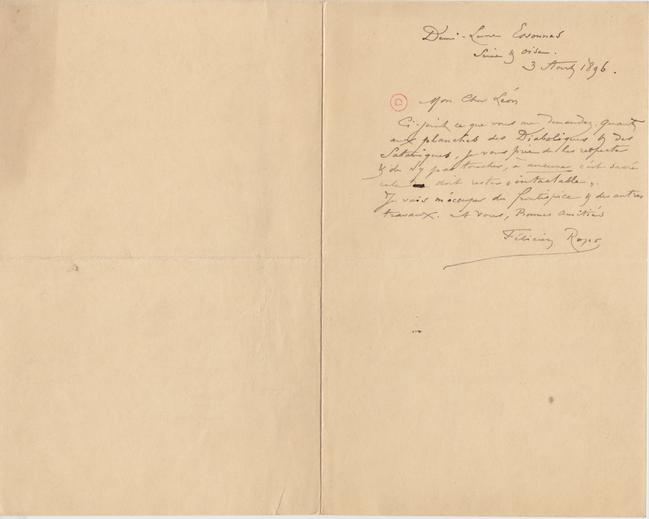 Demi-Lune Essonnes
Seine & Oise.
3 Août 1896.
Mon Cher Léon
Ci-joint ce que vous me demandez. Quant
aux planches des Diaboliques & des
Sataniques, je vous prie de les respecter
& de n'y pas toucher, à aucune c'est sacré
cela doit rester intactable.
Je vais m'occuper du frontispice & des autres
travaux. à vous, Bonnes amitiés
Félicien Rops